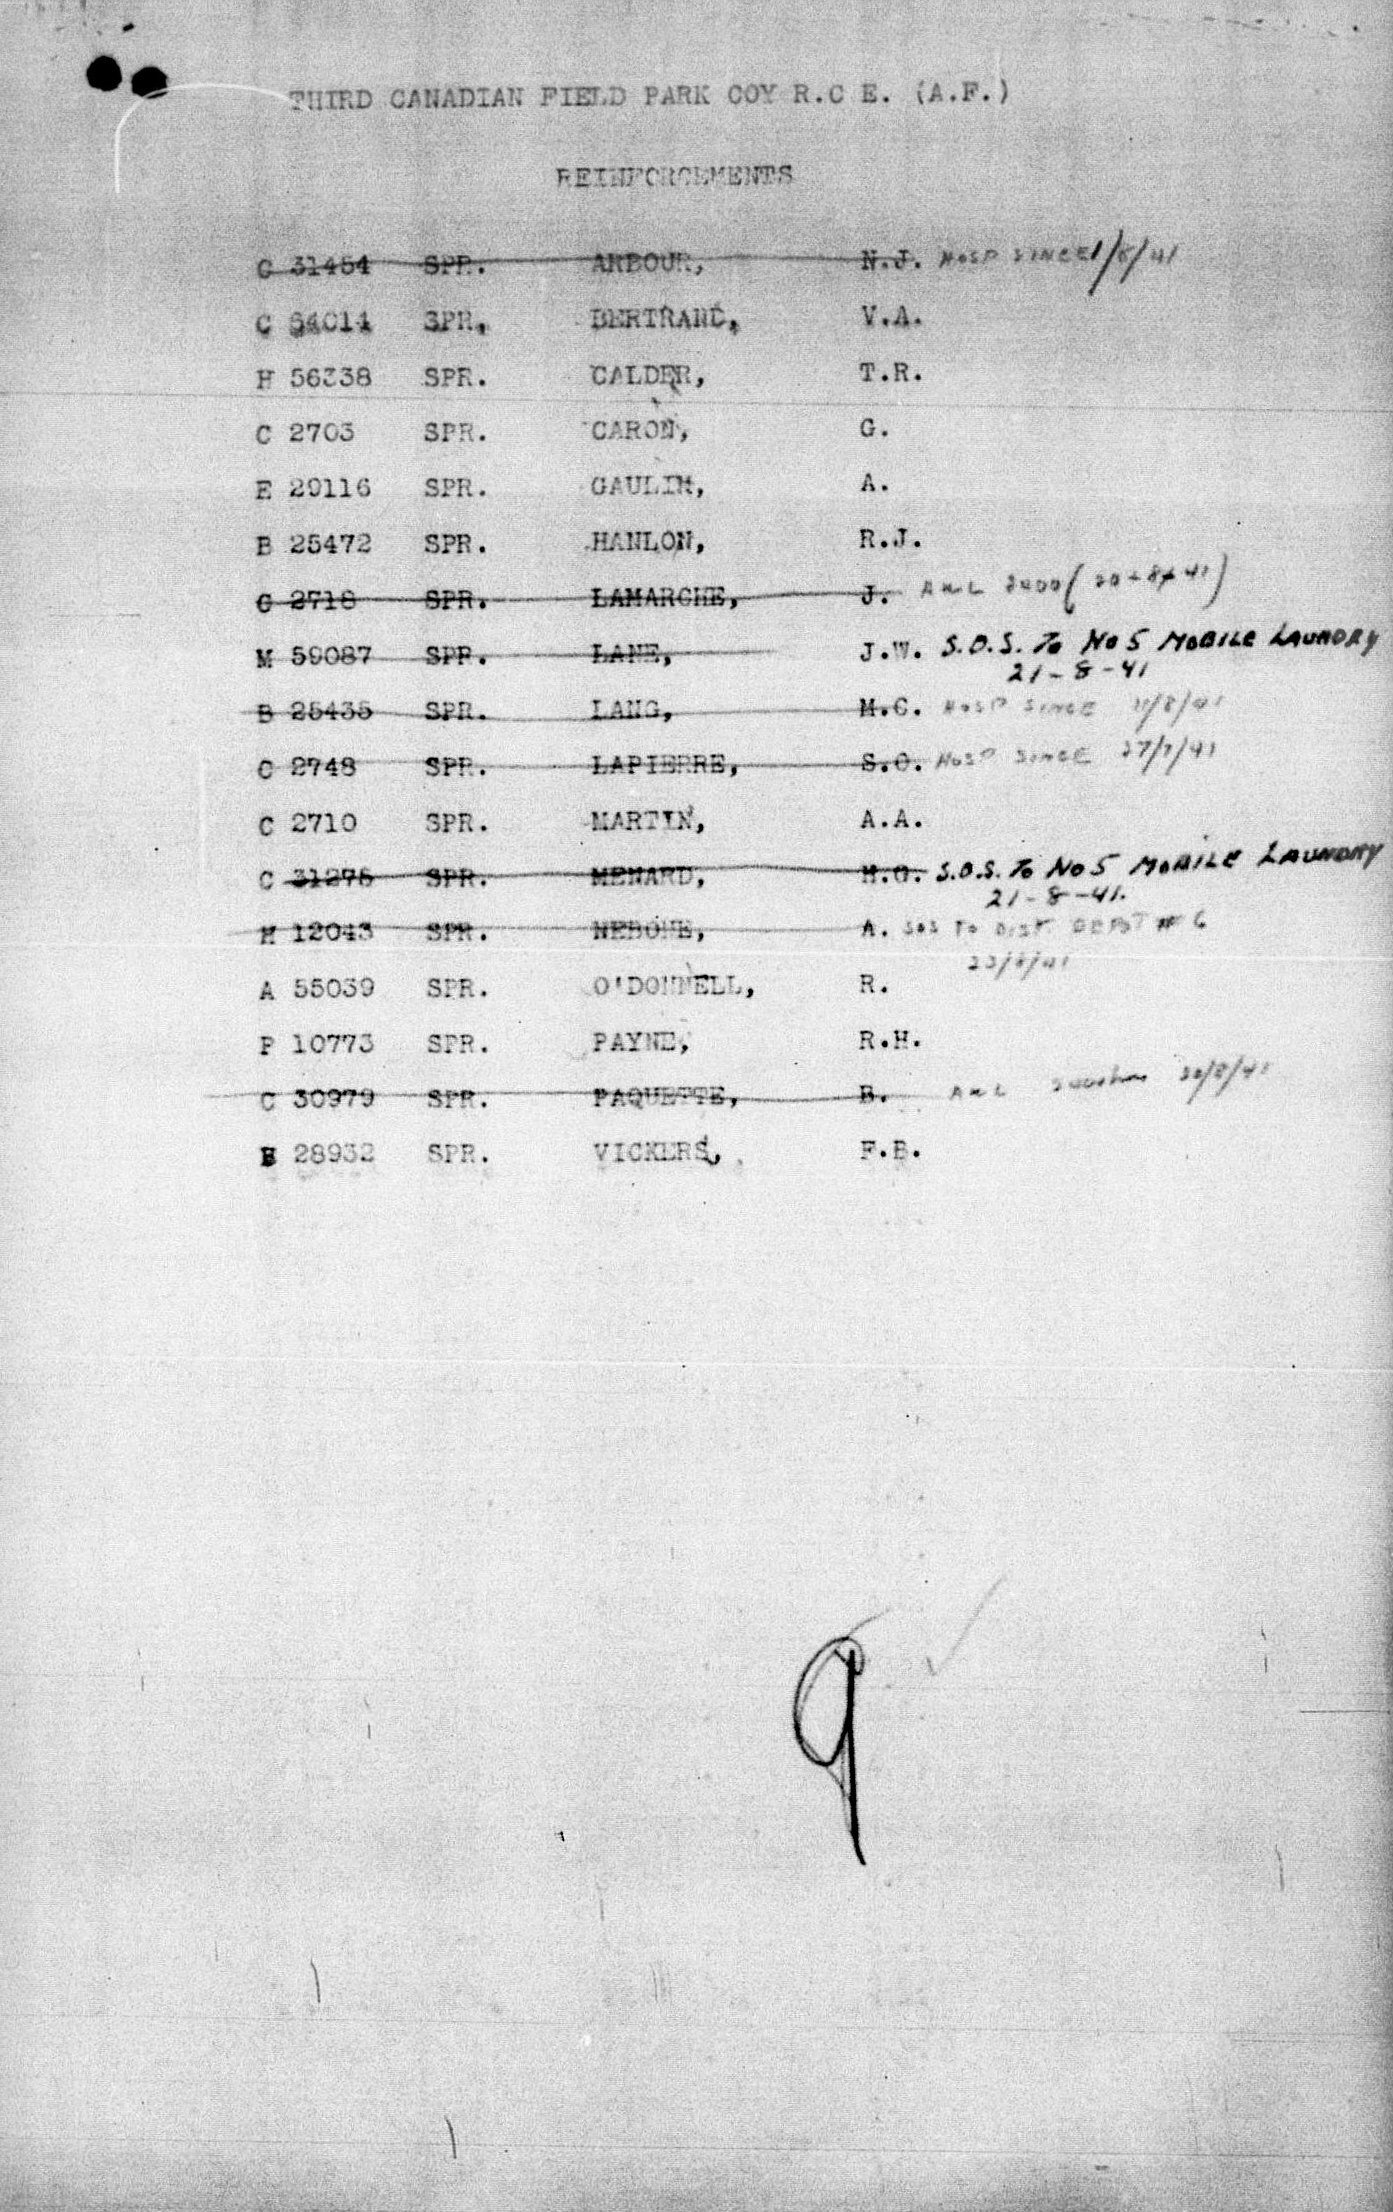 THIRD CANADIAN FIELD PARK COY R.C E. (A.F.)
REINFORCEMENTS
C 31454 SPR. ARBOUR, N.J. HOSP SINCE 1/8/41
C 54014 SPR. BERTRAND, V.A.
H 56338 SPR. CALDER, T.R.
C 2703 SPR. CARON, G.
E 29116 SPR. GAULIN, A.
B 25472 SPR. HANLON, R.J.
C 2718 SPR. LAMARCHE, J. AWL 2400 (20-8-41)
M 59087 SPR. LANE, J.W. S.O.S. To No 5 MOBILE LAUNDRY
21-8-41
B 25435 SPR. LANG, M.C. HOSP SINCE 11/8/41
C 2748 SPR. LAPIERRE, S.O. HOSP SINCE 27/7/41
C 2710 SPR. MARTIN, A.A.
C 31275 SPR. MENARD, H.G. S.O.S. To No 5 MOBILE LAUNDRY
21-8-41.
SPR. A. SOS TO DIST DEPOT # 6
A 55039 SPR. O'DONNELL, R.
F 10773 SPR. PAYNE, R.H.
C 30979 SPR. PAQUETTE, B. AWL 20/8/41
28932 SPR. VICKERS, F.B.
9